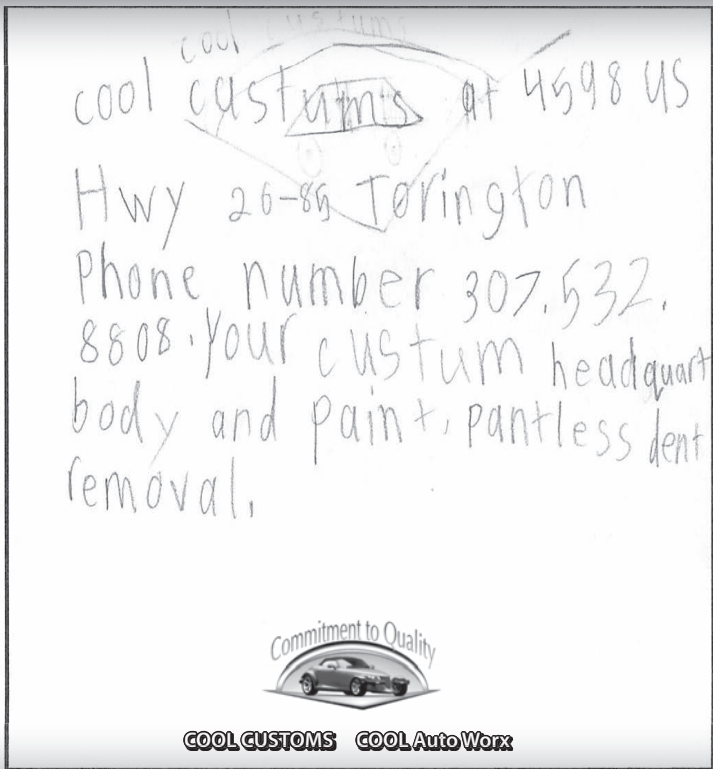 cool custums
cool custums at 4598 US
Hwy 26-85 Torington
Phone number 307.532.
8808. Your custum headquart
body and paint, pantless dent
removal.
Commitment to Quality
COOL CUSTOMS COOL Auto Worx